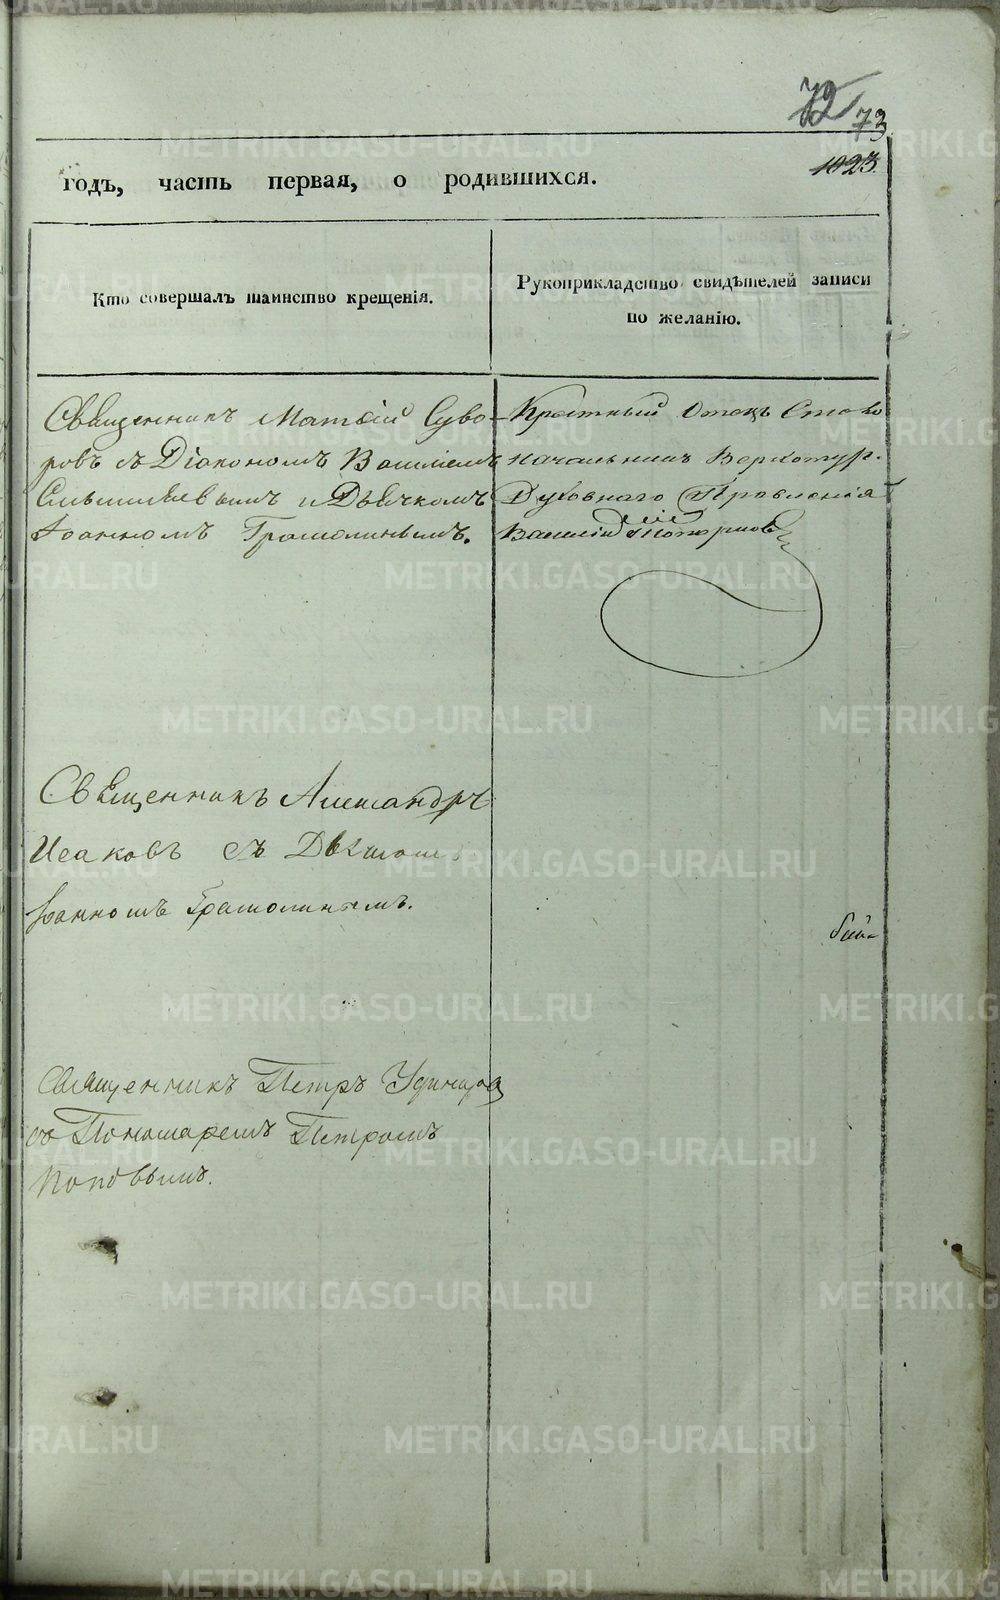 72
73
1023
годъ, часть первая, о родившихся.
Кто совершалъ таинство крещенія.
Рукоприкладство свидѣтелей записи
по желанію.
Священникъ Матѳій Суво-
ровъ съ Діакономъ Василіемъ
и Дьячкомъ
Іоанномъ Грамолинымъ.
Крестный Отецъ Столо
начальникъ Верхотур.
Духовнаго Правленія
Василій
Священникъ Александръ
Исаковъ съ Дьячкомъ
Іоанномъ Грамолинымъ.
Священникъ Петръ Удинцовъ
съ Пономаремъ Петромъ
Поповымъ.
METRIKI.GASO-URAL.RU